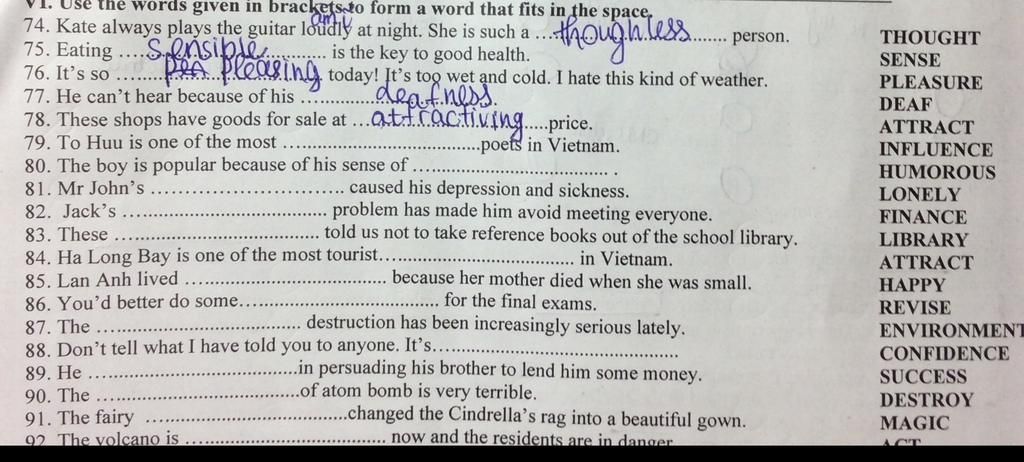 VI. Use the words given in brackets to form a word that fits in the space.
74. Kate always plays the guitar loudly at night. She is such a ...thoughless....... person. THOUGHT
75. Eating ....sensible.......... is the key to good health. SENSE
76. It's so ........pleasing today! It's too wet and cold. I hate this kind of weather. PLEASURE
77. He can't hear because of his ..............deafness. DEAF
78. These shops have goods for sale at ...attractiving.....price. ATTRACT
79. To Huu is one of the most ....................................poets in Vietnam. INFLUENCE
80. The boy is popular because of his sense of .................................... . HUMOROUS
81. Mr John's .................................... caused his depression and sickness. LONELY
82. Jack's .................................... problem has made him avoid meeting everyone. FINANCE
83. These .................................... told us not to take reference books out of the school library. LIBRARY
84. Ha Long Bay is one of the most tourist.................................... in Vietnam. ATTRACT
85. Lan Anh lived .................................... because her mother died when she was small. HAPPY
86. You'd better do some.................................... for the final exams. REVISE
87. The .................................... destruction has been increasingly serious lately. ENVIRONMENT
88. Don't tell what I have told you to anyone. It's............................................ CONFIDENCE
89. He ....................................in persuading his brother to lend him some money. SUCCESS
90. The ....................................of atom bomb is very terrible. DESTROY
91. The fairy ....................................changed the Cindrella's rag into a beautiful gown. MAGIC
92. The volcano is .................................... now and the residents are in danger ACT